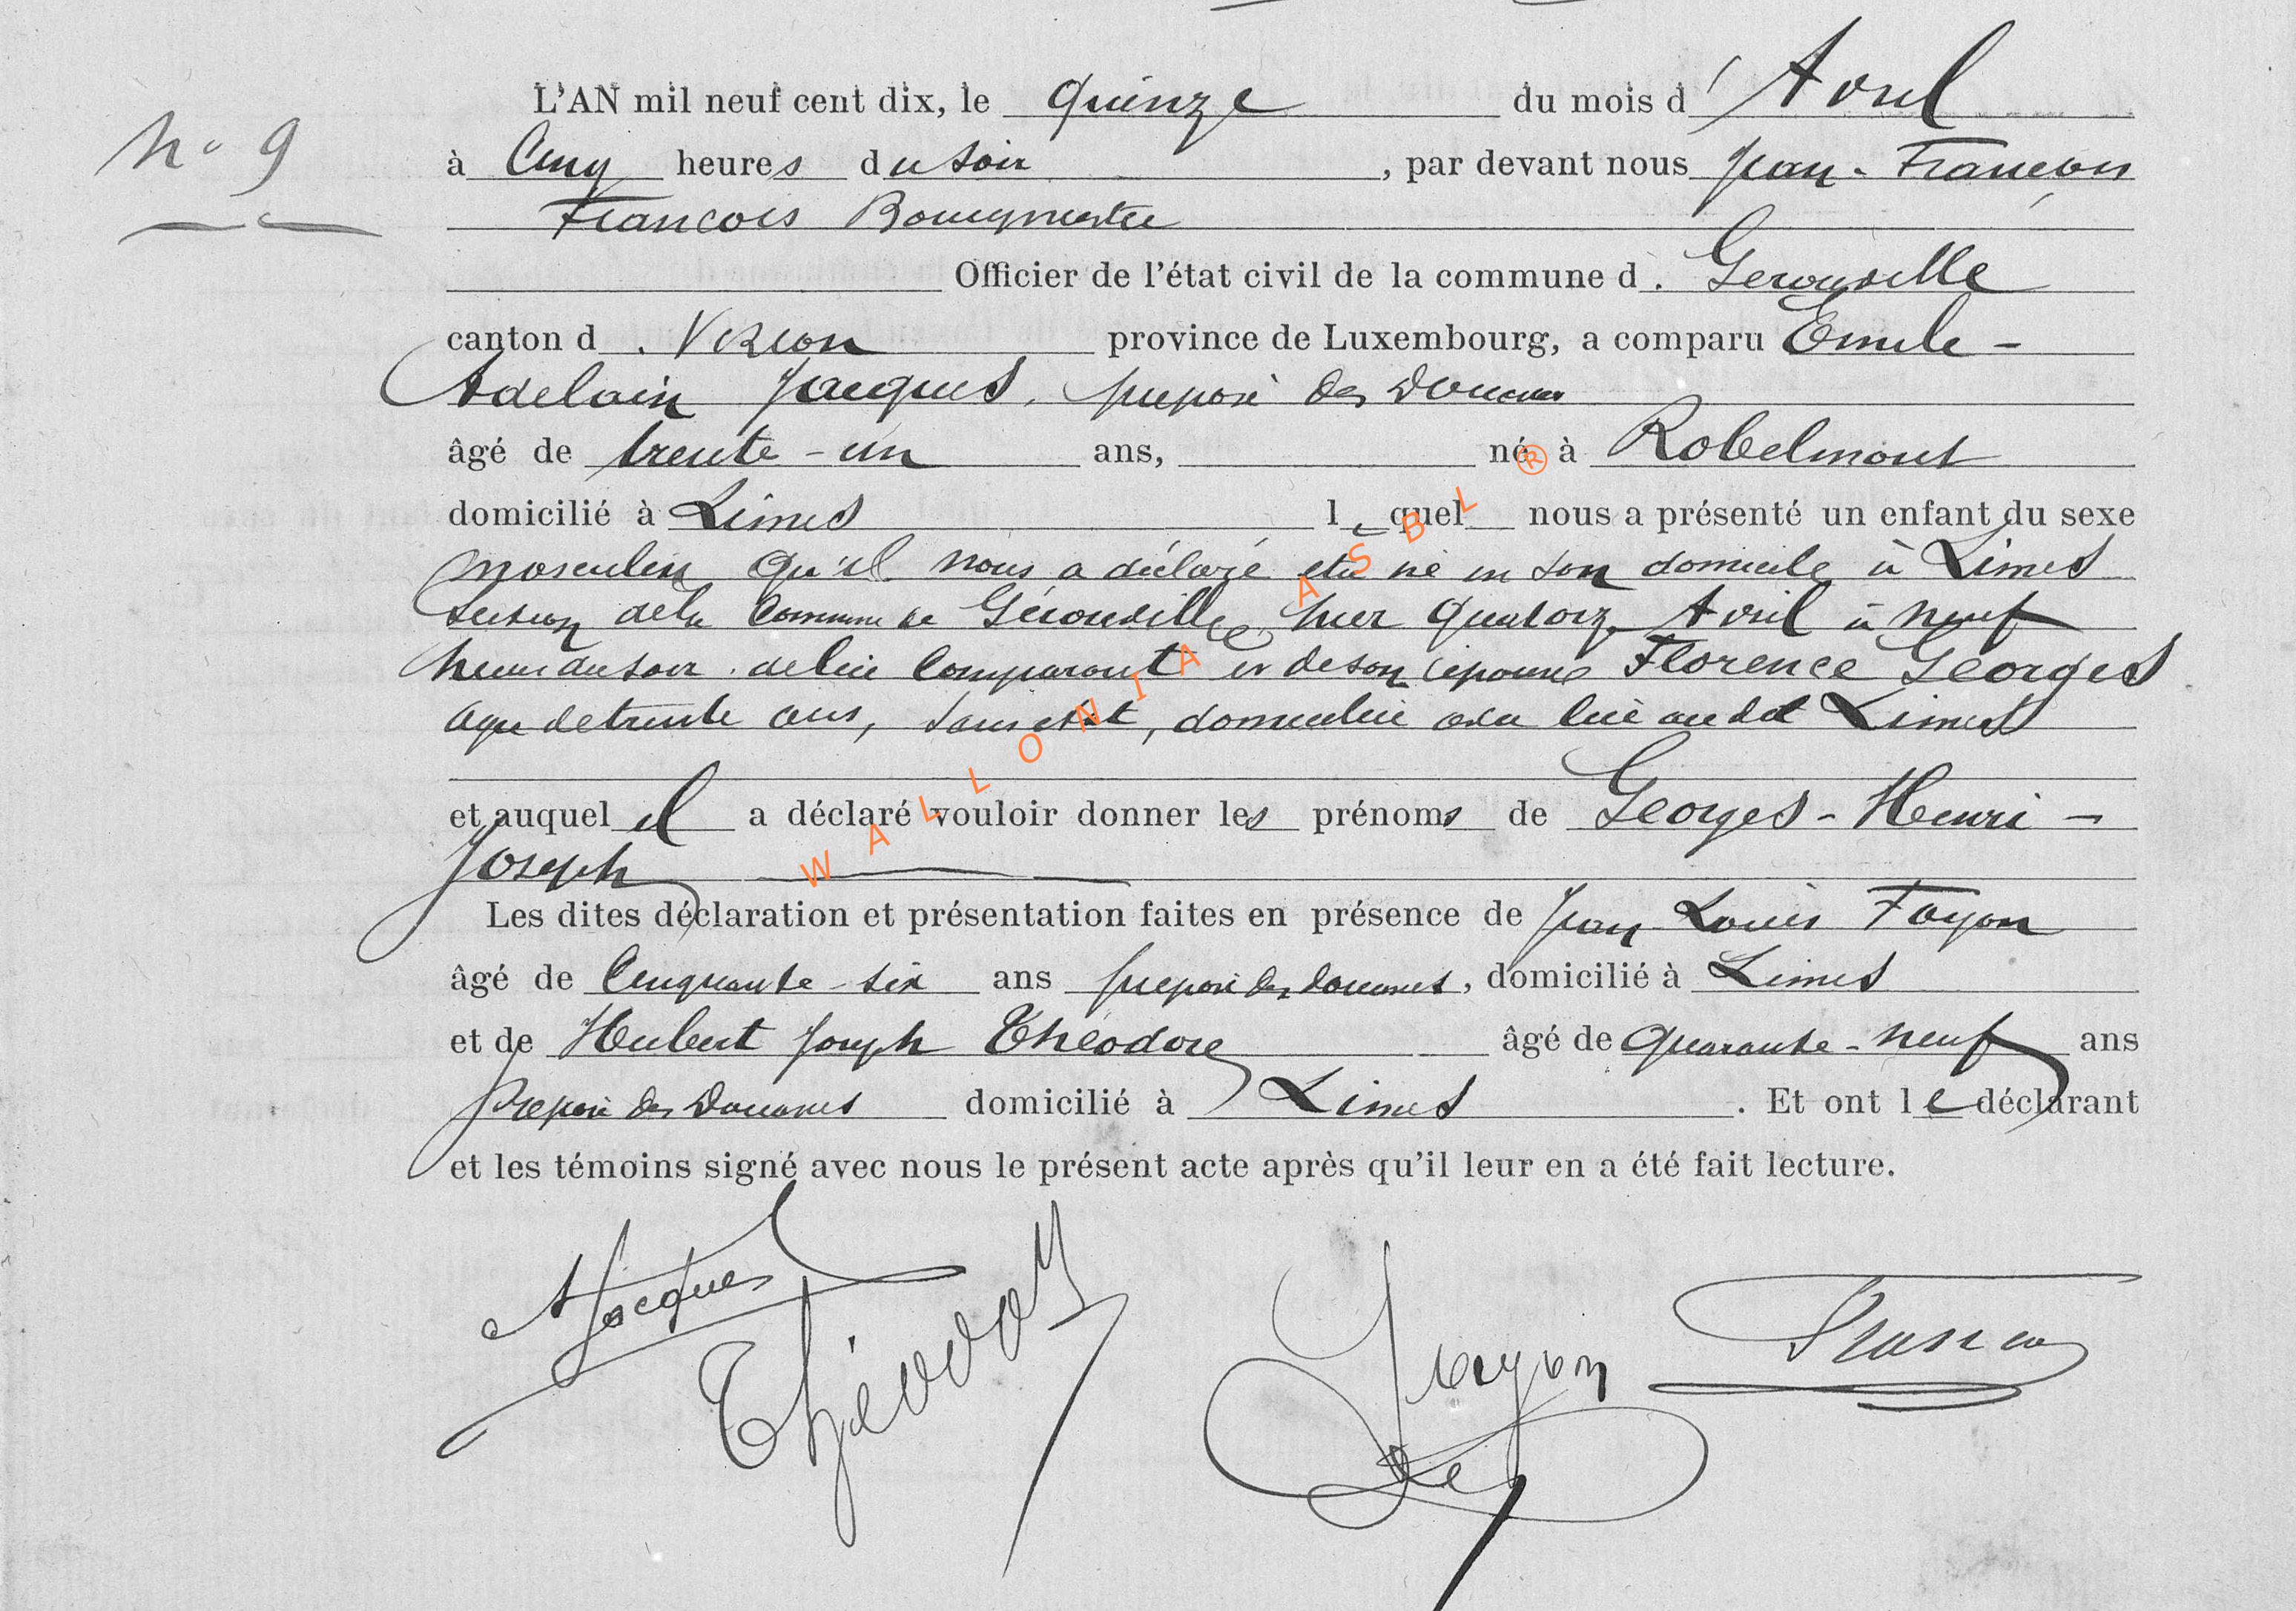 L'AN mil neuf cent dix, le quinze du mois d'Avril
N° 9
à Cinq heures du soir, par devant nous Jean-François
François Bourgmestre
Officier de l'état civil de la commune d. Gerouville
canton d. Virton province de Luxembourg, a comparu Emile-
Adelain Jacques, préposé des Douanes
âgé de trente-un ans, né à Robelmont
domicilié à Limes lequel nous a présenté un enfant du sexe
masculin qu'il nous a déclaré être né en son domicile à Limes
section de la Commune de Gérouville, hier quatorze Avril à neuf
heures du soir de lui Comparant et de son épouse Florence Georges
agée de trente ans, sans état, domiciliée avec lui au dit Limes
et auquel il a déclaré vouloir donner les prénoms de Georges-Henri-
Joseph
Les dites déclaration et présentation faites en présence de Jean Louis Foyon
âgé de Cinquante-six ans préposé des douanes, domicilié à Limes
et de Hubert Joseph Théodore âgé de quarante-neuf ans
Préposé des Douanes domicilié à Limes. Et ont le déclarant
et les témoins signé avec nous le présent acte après qu'il leur en a été fait lecture.
A Jacques
Théodore
Foyon
François
WALLONIA ASBL ®